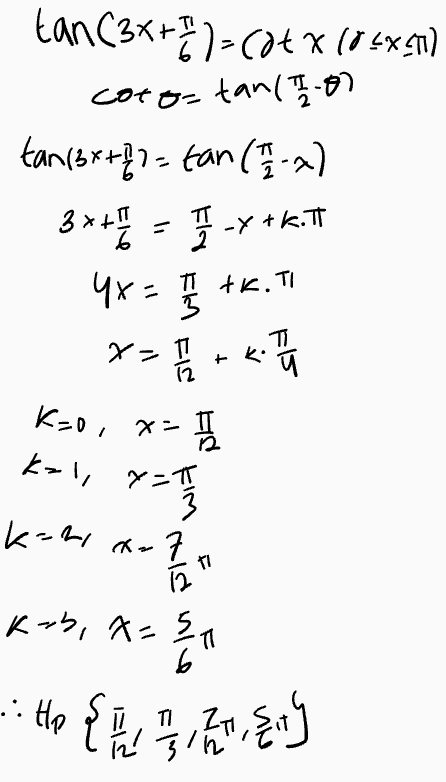 tan(3x+π/6)=cot x (0≤x≤π)
cot θ= tan(π/2-θ)
tan(3x+π/6)= tan(π/2-x)
3x+π/6 = π/2 -x +k.π
4x= π/3 +k.π
x= π/12 + k.π/4
k=0, x= π/12
k=1, x=π/3
k=2, x=7/12 π
k=3, x=5/6 π
∴ Hp {π/12, π/3, 7/12π, 5/6π}